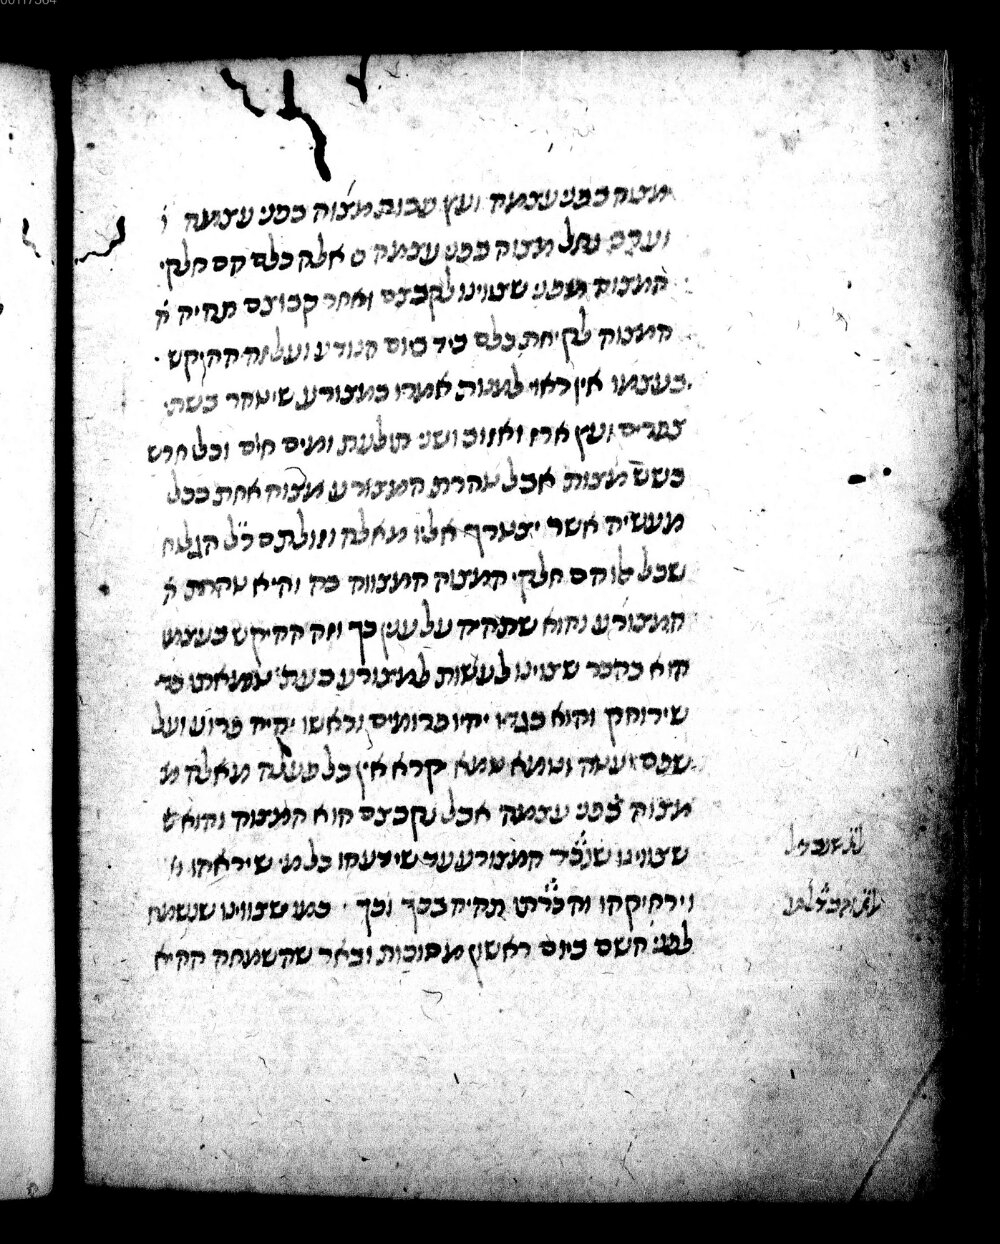 מצוה בפני עצמה ועץ עבות מצוה בפני עצמה ו
וערבי נחל מצוה בפני עצמה כי אלה כלם הם חלקי
המצוה מפני שצוינו לקבצם ואחר קבוצם תהיה ה
המצוה לקיחת כלם ביד ביום הנודע ועל זה ההיקש
בעצמו אין ראוי למנות אמרו במצורע שיטהר בשתי
צפרים ועץ ארז ואזוב ושני תולעת ומים חיים וכל חרש
בשש מצות אבל טהרת המצורע מצוה אחת בכל
מעשיה אשר יצטרך אליו מאלה וזולתם ר״ל הגלוח
שכל אלו הם חלקי המצוה המצווה בה והיא טהרת ה
המצורע והוא שתהיה על ענין כך וזה ההיקש בעצמו
הוא בהכר שצוינו לעשות למצורע בעת טומאתו כדי
שירוחק והוא בגדיו יהיו פרומים וראשו יהיה פרוע ועל
שפם יעטה וטמא טמא יקרא אין כל פעלה מאלה מ
מצוה בפני עצמה אבל קבצם הוא המצוה והוא ש
שצוינו שנכיר המצורע עד שידעהו כל מי שיראהו
וירחיקהו והכרתו תהיה בכך וכך כמו שצווינו שנשמח
לפני השם ביום ראשון מסוכות ובאר שהשמחה ההיא